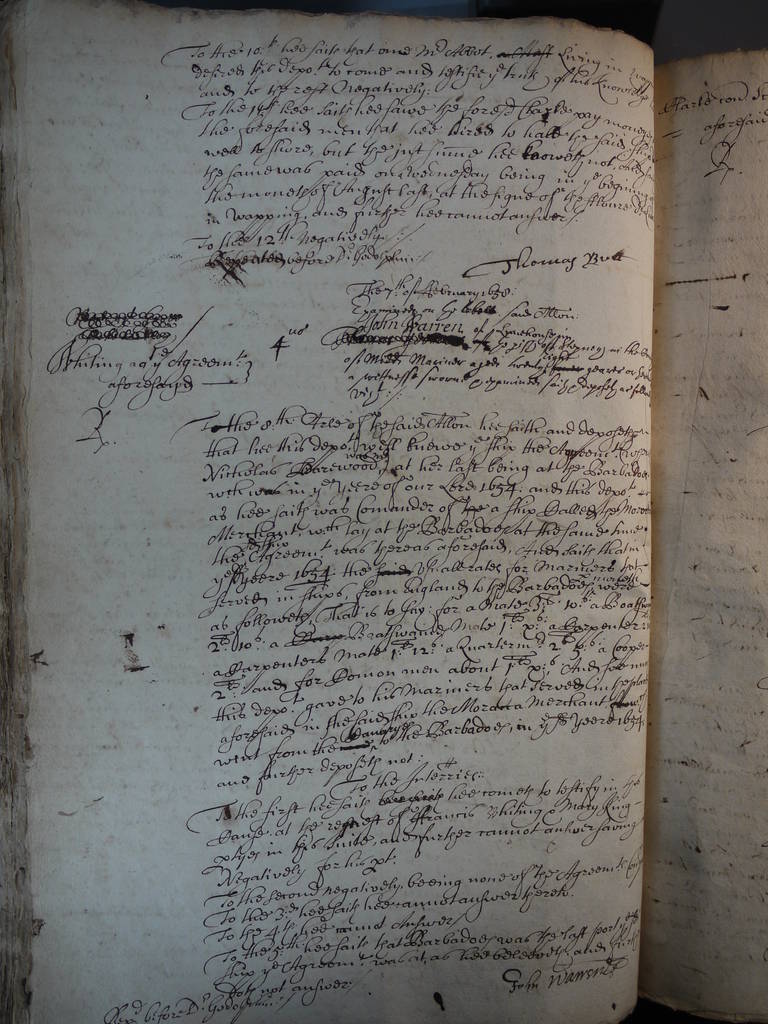 To the 10th hee saith that one Mr Abbot, living in
desired this depot to come and testifie ye truth of his knowledge
and to the rest Negatively.
To the 11th hee saith hee sawe the foresd Clarke pay moneyes
the foresaid men that hee hired to hale the said ship
well to shore, but the just summe hee knoweth not, and
the same was paid on Wednesday being in ye beginning
the moneth of August last, at the signe of the flower de
in Wapping, and further hee cannot answer.
To the 12th Negatively.
Repeated before Dr Godolphin:
Thomas Butt
The 7th of February 1658:
Examined on the said Allon:
Whiting agt ye Agreemt
aforesaid
4us
John Warren of
of Mariner aged twenty eight yeares or
a witnesse sworne examined saith deposeth as follow
vizt:
To the 8th Arle of the said Allon hee saith and deposeth
that hee this depot well knewe ye ship the Agreemt
Nicholas Harewood at her last being at the Barbadoes
wch was in ye yeere of our Lord 1654: and this depot
as hee saith was Comander of a ship called the Morocco
Merchant, wch lay at the Barbadoes at the same time
the ship Agreemt was there as aforesaid, And saith that in
yeere 1654: the usuall rates for Mariners that
served in ships, from England to the Barbadoes were
as followeth, That is to say: for a Mate 3li 10s: a Boatswaine
2li 10s: a Boatswaines Mate 1li: xs: a Carpenter
a Carpenters Mate 1li: 12s: a Quarterm 2li 6s: a Cooper
2li: and for Comon men about 1li xs; And
this depot gave to his Mariners that served in the place
aforesaid in the said ship the Morocca Merchant
went from the Canaryes to the Barbadoes, in ye yeere 1654:
and further deposeth not:
To the Interries:
To the first hee saith hee cometh to testify in the
Cause, at the request of Francis Whiting & Mary King
ptyes in this suite, and further cannot answer saving
Negatively for his pt.
To the second negatively, beeing none of the Agreemts
To the 3d: hee saith hee cannot answer thereto.
To the 4th hee cannot Answer
To the 5th hee saith that Barbadoes was the last port
ship ye Agreemt was at, as hee beleeveth, and further
doth not answer:
Repd before Dr Godolphin:
John Warren
Clarke con
aforesaid